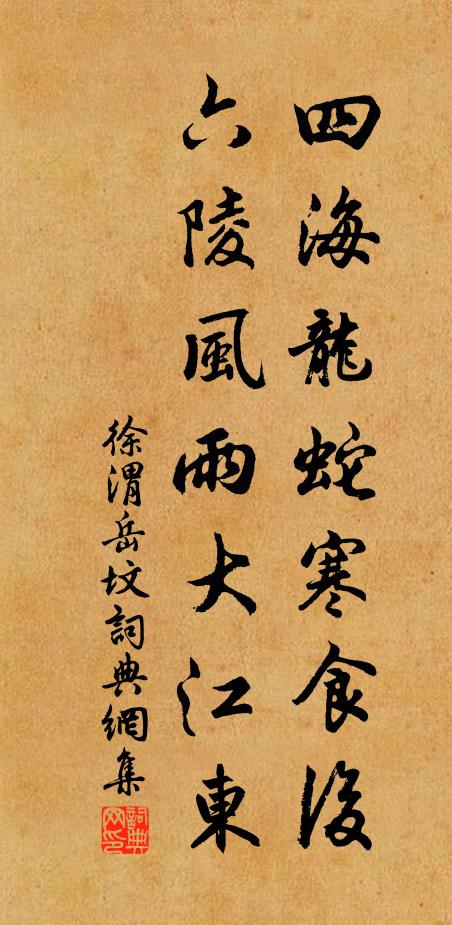 四海龍蛇寒食後
六陵風雨大江東
徐渭岳坟詞典網集
詞典网印